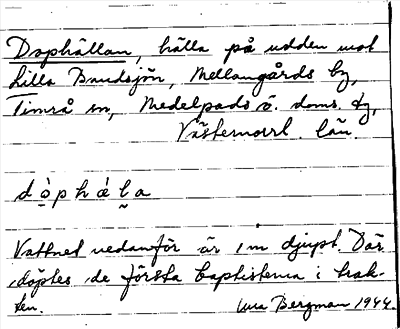 Dophällan, hälla på udden mot
Lilla Bandsjön, Mellangårds by,
Timrå sn, Medelpads ö. doms. tg,
Västernorrl. län.
d ò p h à l a
Vattnet nedanför är 1 m djupt. Där
döptes de första baptisterna i trak-
ten.
Bergman 1944.